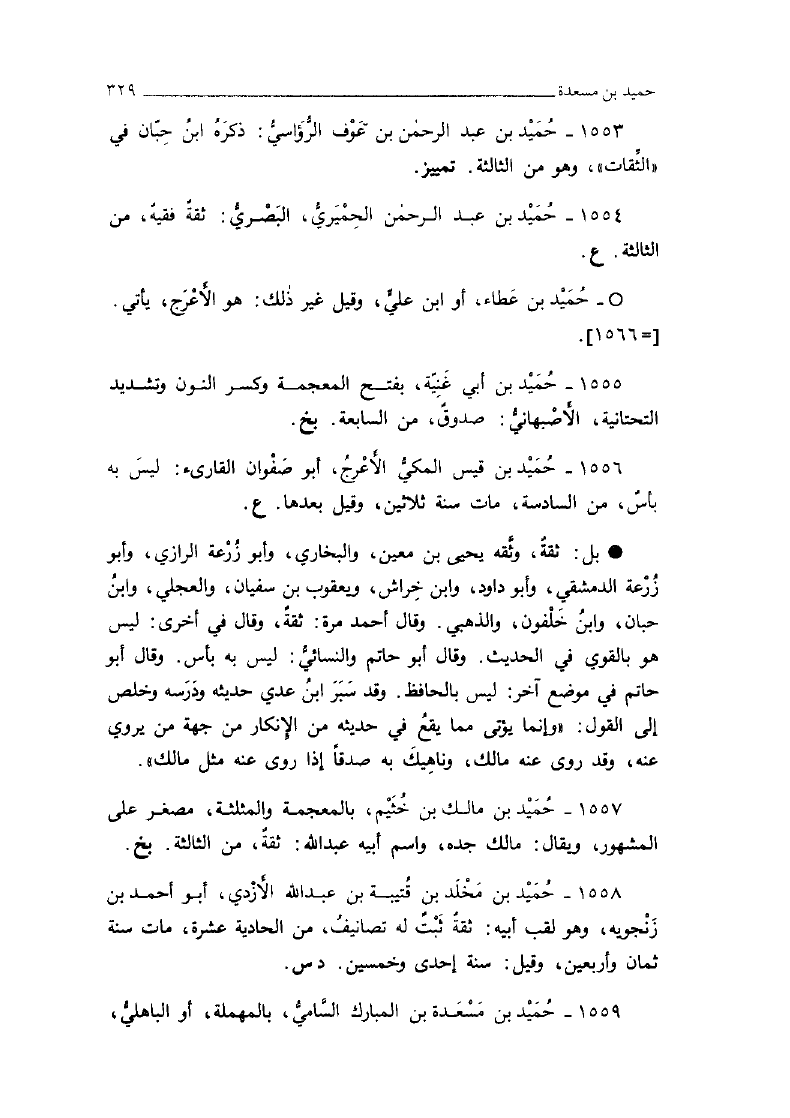 حميد بن مسعدة ــــــــــــــــــــ ٣٢٩
١٥٥٣ ـ حُمَيْد بن عبد الرحمٰن بن عَوْف الرُّؤَاسيُّ: ذكرَهُ ابنُ حِبّان في
«الثِّقات»، وهو من الثالثة. تمييز.
١٥٥٤ ـ حُمَيْد بن عبد الرحمٰن الحِمْيَريُّ، البَصْريُّ: ثقةٌ فقيهٌ، من
الثالثة. ع.
○ ـ حُمَيْد بن عَطاء، أو ابن عليٍّ، وقيل غير ذٰلك: هو الأَعْرَج، يأتي.
[=١٥٦٦].
١٥٥٥ ـ حُمَيْد بن أبي غَنِيّة، بفتح المعجمة وكسر النون وتشديد
التحتانية، الأَصْبهانيُّ: صدوقٌ، من السابعة. بخ.
١٥٥٦ ـ حُمَيْد بن قيس المكيُّ الأَعْرجُ، أبو صَفْوان القارىء: ليسَ به
بأسٌ، من السادسة، مات سنة ثلاثين، وقيل بعدها. ع.
● بل: ثقةٌ، وثَّقه يحيى بن معين، والبخاري، وأبو زُرْعة الرازي، وأبو
زُرْعة الدمشقي، وأبو داود، وابن خِراش، ويعقوب بن سفيان، والعجلي، وابنُ
حبان، وابنُ خَلْفون، والذهبي. وقال أحمد مرة: ثقةٌ، وقال في أخرى: ليس
هو بالقوي في الحديث. وقال أبو حاتم والنسائيُّ: ليس به بأس. وقال أبو
حاتم في موضع آخر: ليس بالحافظ. وقد سَبَرَ ابنُ عدي حديثه ودَرَسه وخلص
إلى القول: «وإنما يؤتى مما يقعُ في حديثه من الإنكار من جهة من يروي
عنه، وقد روى عنه مالك، وناهِيكَ به صدقاً إذا روى عنه مثل مالك».
١٥٥٧ ـ حُمَيْد بن مالك بن خُثَيْم، بالمعجمة والمثلثة، مصغر على
المشهور، ويقال: مالك جده، واسم أبيه عبدالله: ثقةٌ، من الثالثة. بخ.
١٥٥٨ ـ حُمَيْد بن مَخْلَد بن قُتيبة بن عبدالله الأَزْدي، أبو أحمد بن
زَنْجويه، وهو لقب أبيه: ثقةٌ ثَبْتٌ له تصانيفُ، من الحادية عشرة، مات سنة
ثمان وأربعين، وقيل: سنة إحدى وخمسين. د س.
١٥٥٩ ـ حُمَيْد بن مَسْعَدة بن المبارك السَّاميُّ، بالمهملة، أو الباهليُّ،